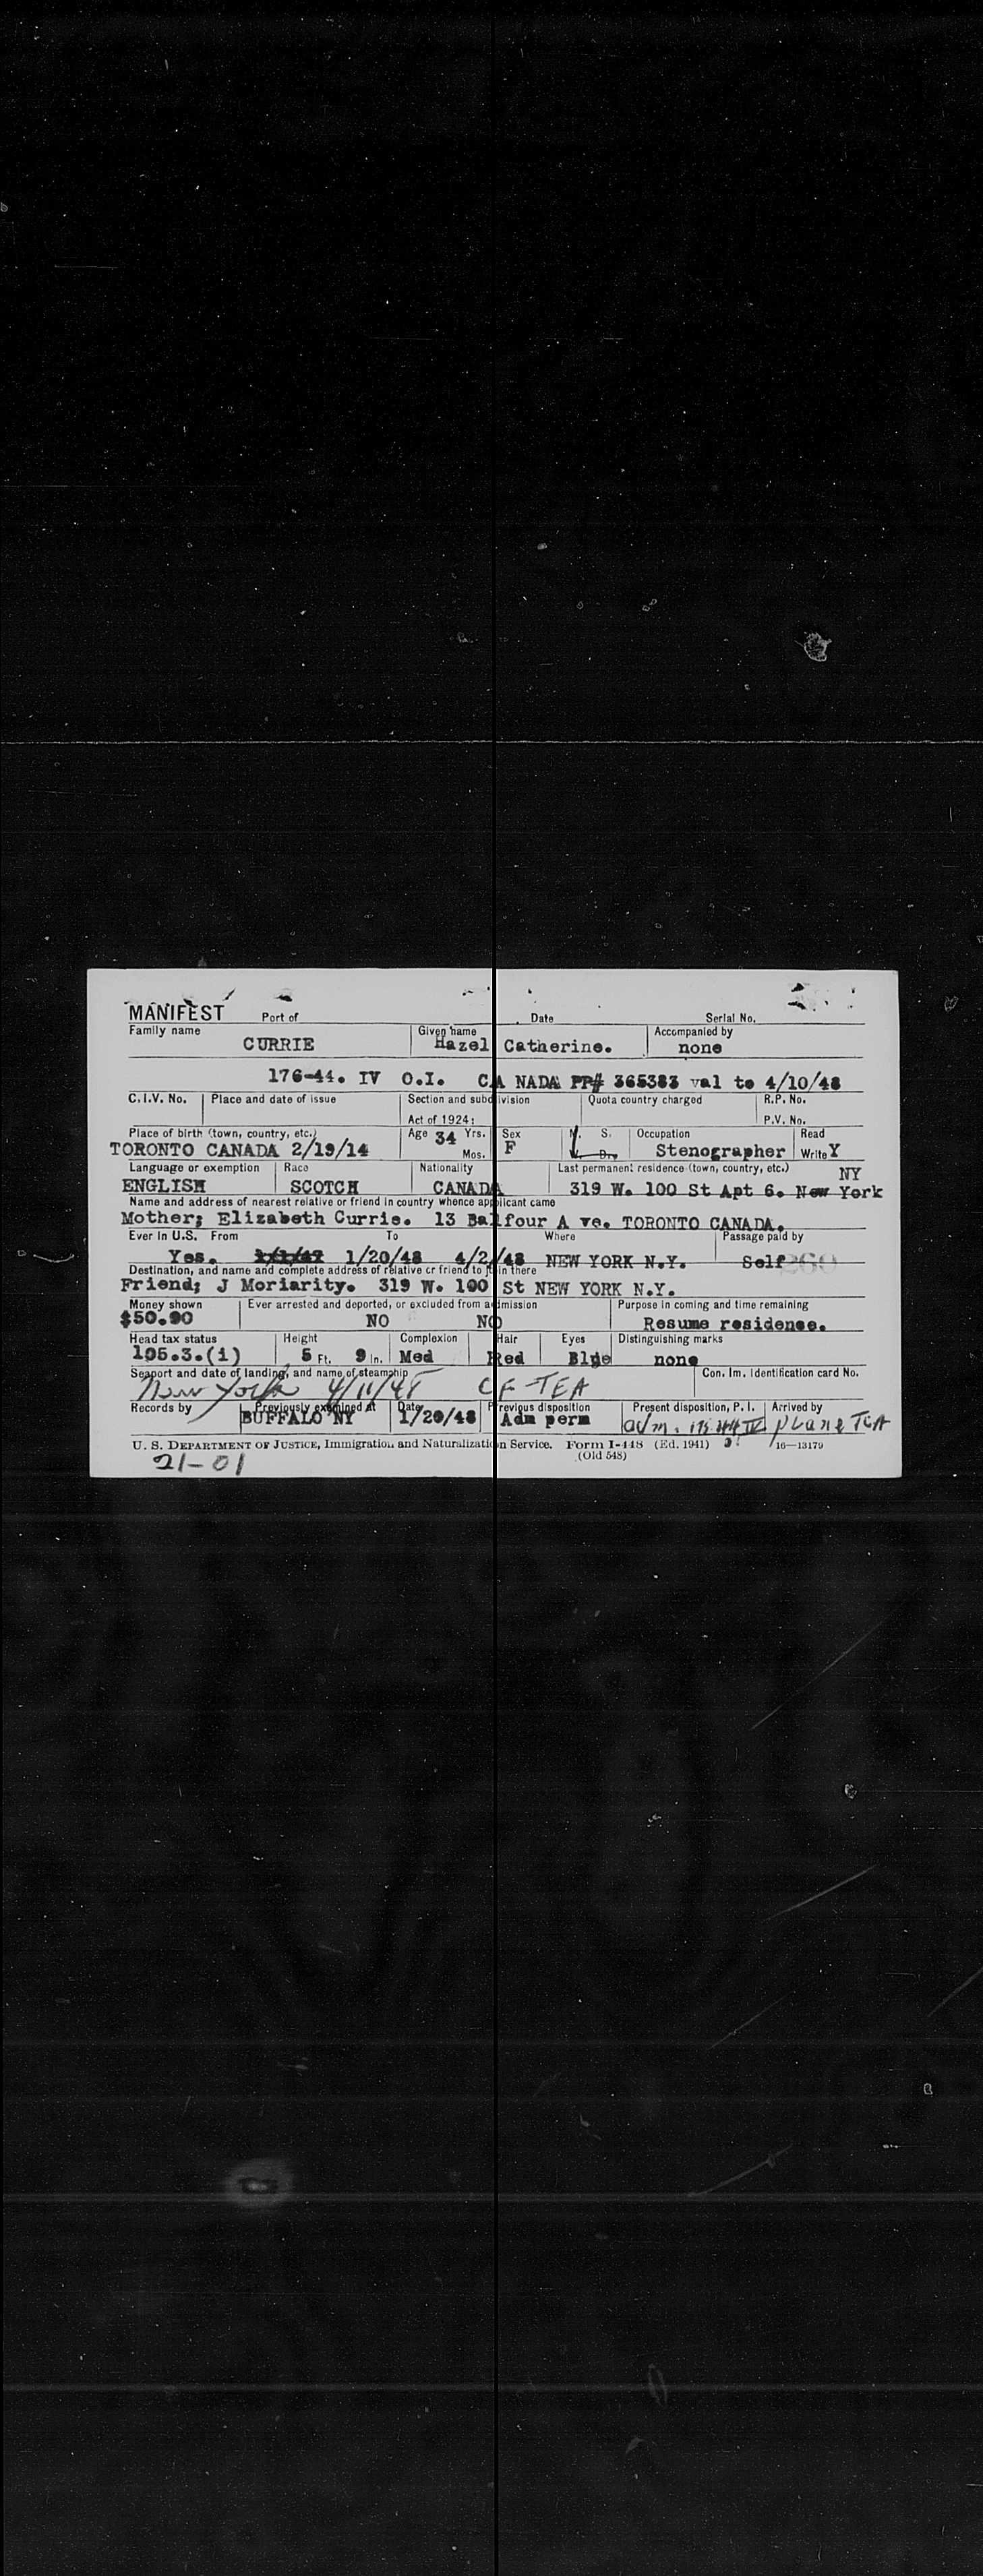 MANIFEST Port of Date Serial No.
Family name Given name Accompanied by
CURRIE Hazel Catherine. none
176-44. IV O.I. CA NADA PP# 365383 val to 4/10/48
C.I.V. No. Place and date of issue Section and subdivision Quota country charged R.P. No.
Act of 1924: P.V. No.
Place of birth (town, country, etc.) Age 34 Yrs. Sex M. S. Occupation Read
TORONTO CANADA 2/19/14 Mos. F Stenographer Write Y
Language or exemption Race Nationality Last permanent residence (town, country, etc.) NY
ENGLISH SCOTCH CANADA 319 W. 100 St Apt 6. New York
Name and address of nearest relative or friend in country whence applicant came
Mother; Elizabeth Currie. 13 Balfour A ve. TORONTO CANADA.
Ever in U.S. From To Where Passage paid by
Yes. 1/20/48 4/2/48 NEW YORK N.Y. Self 260
Destination, and name and complete address of relative or friend to join there
Friend; J Moriarity. 319 W. 100 St NEW YORK N.Y.
Money shown Ever arrested and deported, or excluded from admission Purpose in coming and time remaining
$50.00 NO NO Resume residence.
Head tax status Height Complexion Hair Eyes Distinguishing marks
105.3.(i) 5 Ft. 9 In. Med Red Blue none
Seaport and date of landing, and name of steamship Con. Im. Identification card No.
New York 4/11/48 CF TEA
Records by Previously examined at Date Previous disposition Present disposition, P. I. Arrived by
BUFFALO NY 1/20/48 Adm perm adm. plane TCA
U. S. DEPARTMENT OF JUSTICE, Immigration and Naturalization Service. Form I-448 (Ed. 1941) 16—13179
(Old 548)
21-01